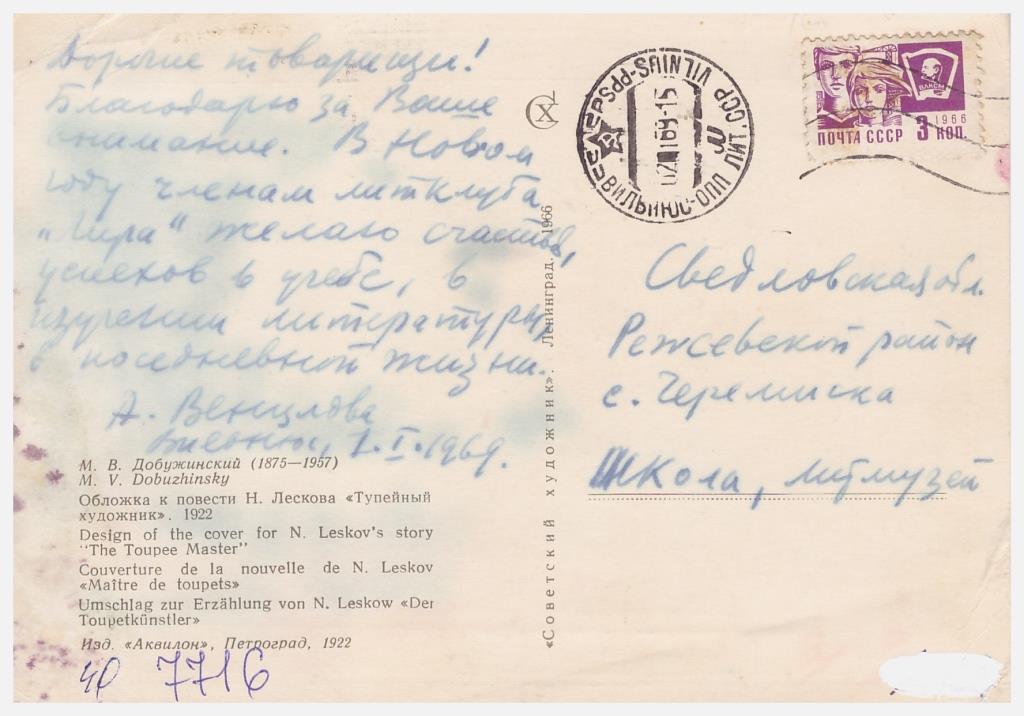 Дорогие товарищи!
Благодарю за Ваше
внимание. В Новом
году членам литклуба
„Лира" желаю счастья,
успехов в учебе, в
изучении литературы,
в поседневной жизни.
А. Венцлова
Вильнюс, 1.I.1969.
М. В. Добужинский (1875—1957)
M. V. Dobuzhinsky
Обложка к повести Н. Лескова «Тупейный
художник». 1922
Design of the cover for N. Leskov's story
"The Toupee Master"
Couverture de la nouvelle de N. Leskov
«Maître de toupets»
Umschlag zur Erzählung von N. Leskow «Der
Toupetkünstler»
Изд. «Аквилон», Петроград, 1922
7716
«Советский художник». Ленинград. 1966
VILNIUS-PPS
ЛИТ. ССР
ВИЛЬНЮС-ОПП
ВЛКСМ
1966
ПОЧТА СССР 3 КОП.
Свердловская обл.
Режевской район
с. Черемиска
Школа, литмузей